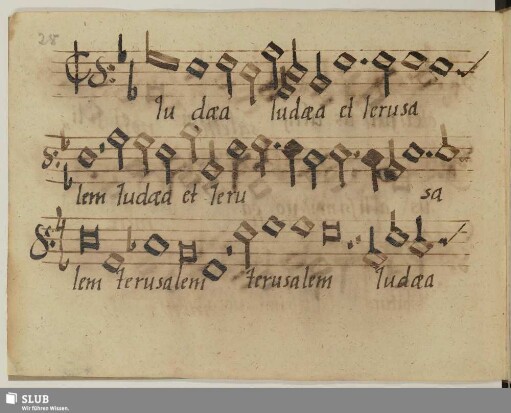 28
Iu dæa Iudæa et Ierusa
lem Iudæa et Ieru sa
lem Ierusalem Ierusalem Iudæa
SLUB
Wir führen Wissen.